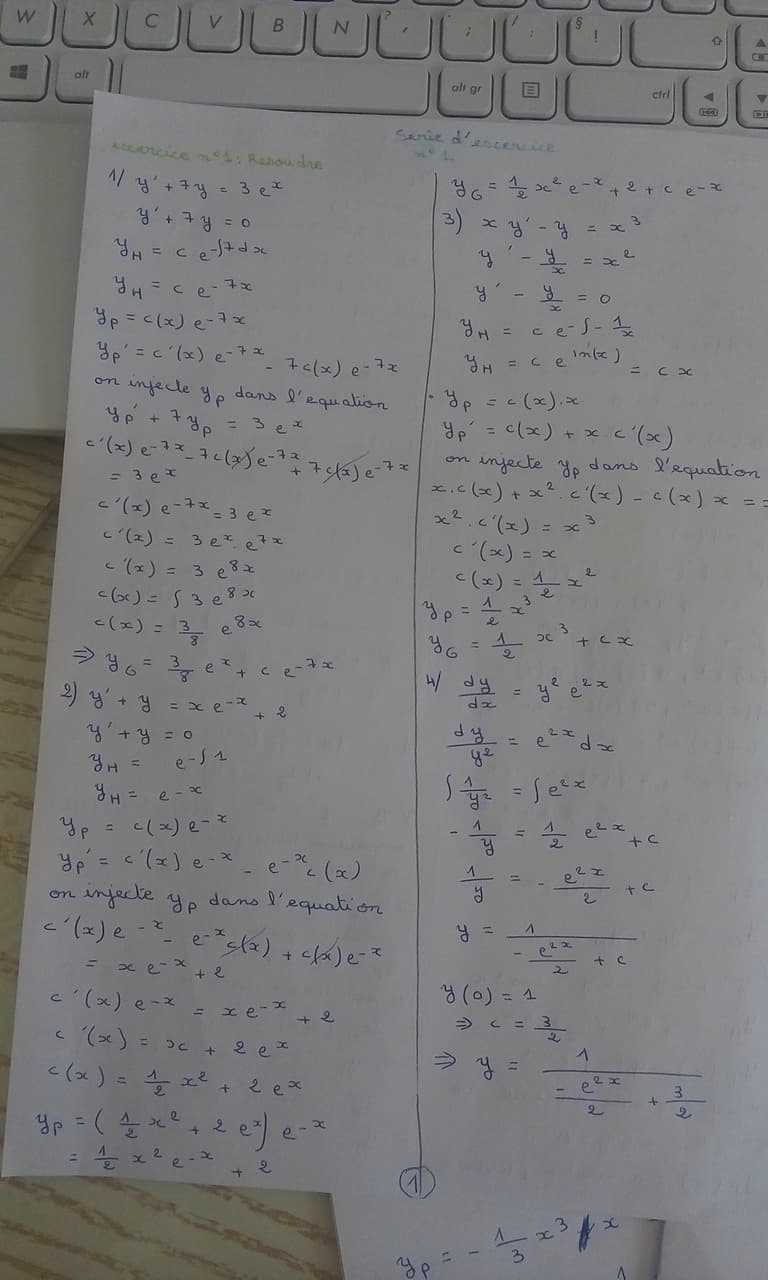 W X C V B N ? , . ; / : § !
alt alt gr ctrl
Serie d'exercice
n°1
exercice n°1: Resoudre
1/ y' + 7y = 3 e^x
y' + 7y = 0
y_H = c e^-∫7dx
y_H = c e^-7x
y_P = c(x) e^-7x
y_P' = c'(x) e^-7x - 7c(x) e^-7x
on injecte y_P dans l'equation
y_P' + 7y_P = 3 e^x
c'(x) e^-7x - 7c(x) e^-7x + 7c(x) e^-7x
= 3 e^x
c'(x) e^-7x = 3 e^x
c'(x) = 3 e^x . e^7x
c'(x) = 3 e^8x
c(x) = ∫ 3 e^8x
c(x) = 3/8 e^8x
⇒ y_G = 3/8 e^x + c e^-7x
2) y' + y = x e^-x + 2
y' + y = 0
y_H = e^-∫1
y_H = e^-x
y_P = c(x) e^-x
y_P' = c'(x) e^-x - e^-x c(x)
on injecte y_P dans l'equation
c'(x) e^-x - e^-x c(x) + c(x) e^-x
= x e^-x + 2
c'(x) e^-x = x e^-x + 2
c'(x) = x + 2 e^x
c(x) = 1/2 x² + 2 e^x
y_P = (1/2 x² + 2 e^x) e^-x
= 1/2 x² e^-x + 2
y_G = 1/2 x² e^-x + 2 + c e^-x
3) x y' - y = x³
y' - y/x = x²
y' - y/x = 0
y_H = c e^-∫-1/x
y_H = c e^ln(x) = c x
y_P = c(x).x
y_P' = c(x) + x c'(x)
on injecte y_P dans l'equation
x.c(x) + x².c'(x) - c(x) x =
x².c'(x) = x³
c'(x) = x
c(x) = 1/2 x²
y_P = 1/2 x³
y_G = 1/2 x³ + c x
4/ dy/dx = y² e^2x
dy/y² = e^2x dx
∫ 1/y² = ∫ e^2x
- 1/y = 1/2 e^2x + c
1/y = - e^2x/2 + c
y = 1/(- e^2x/2 + c)
y(0) = 1
⇒ c = 3/2
⇒ y = 1/(- e^2x/2 + 3/2)
1
y_P = - 1/3 x³ x